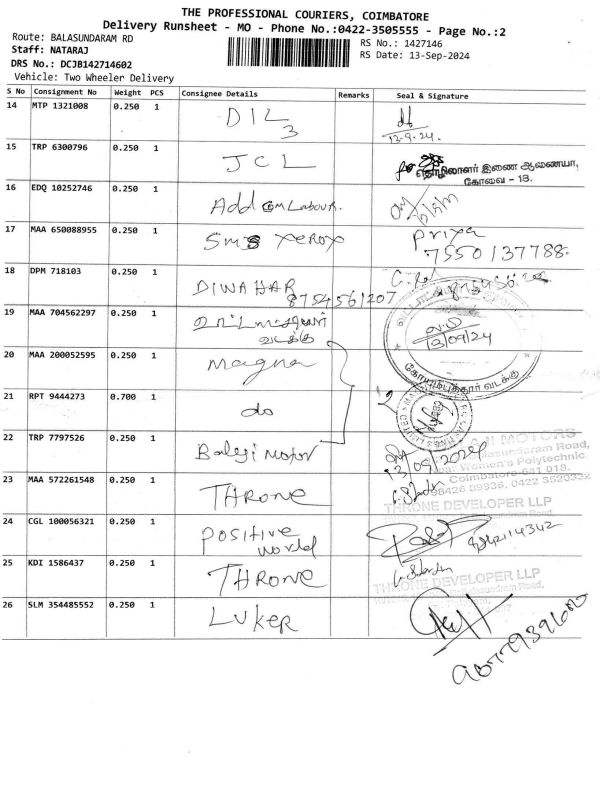 THE PROFESSIONAL COURIERS, COIMBATORE
Delivery Runsheet - MO - Phone No.:0422-3505555 - Page No.:2
Route: BALASUNDARAM RD
RS No.: 1427146
Staff: NATARAJ
RS Date: 13-Sep-2024
DRS No.: DCJB142714602
Vehicle: Two Wheeler Delivery
S No Consignment No Weight PCS Consignee Details Remarks Seal & Signature
14 MTP 1321008 0.250 1 DIL
3
13-9-24.
15 TRP 6300796 0.250 1 JCL
தொழிலாளர் இணை ஆணையர்,
கோவை - 18.
16 EDQ 10252746 0.250 1 Add Com Labour.
17 MAA 650088955 0.250 1 SMS Xerox Priya
7550137788.
18 DPM 718103 0.250 1 DIWAHAR
8754561207
19 MAA 704562297 0.250 1
வடக்கு
13/09/24
கோயம்புத்தூர் வடக்கு
20 MAA 200052595 0.250 1 Magna
21 RPT 9444273 0.700 1 do
22 TRP 7797526 0.250 1 Balaji Motor
13/09/2024
MOTORS
Balasundaram Road,
Near Women's Polytechnic
Coimbatore-641 018.
98426 89936, 0422 3520332
23 MAA 572261548 0.250 1 THRONE
THRONE DEVELOPER LLP
24 CGL 100056321 0.250 1 Positive
World
25 KDI 1586437 0.250 1 THRONE
THRONE DEVELOPER LLP
26 SLM 354485552 0.250 1 LUKER